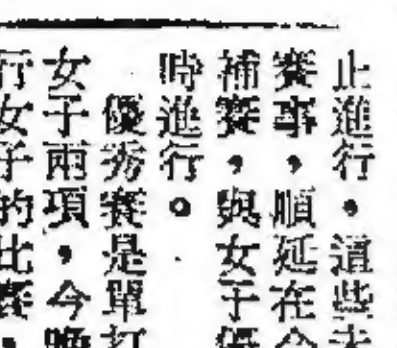 止進行。這些未
賽事，順延在今
補賽，與女子優
時進行。
優秀賽是單打
女子兩項，今晚
行女子的比賽，